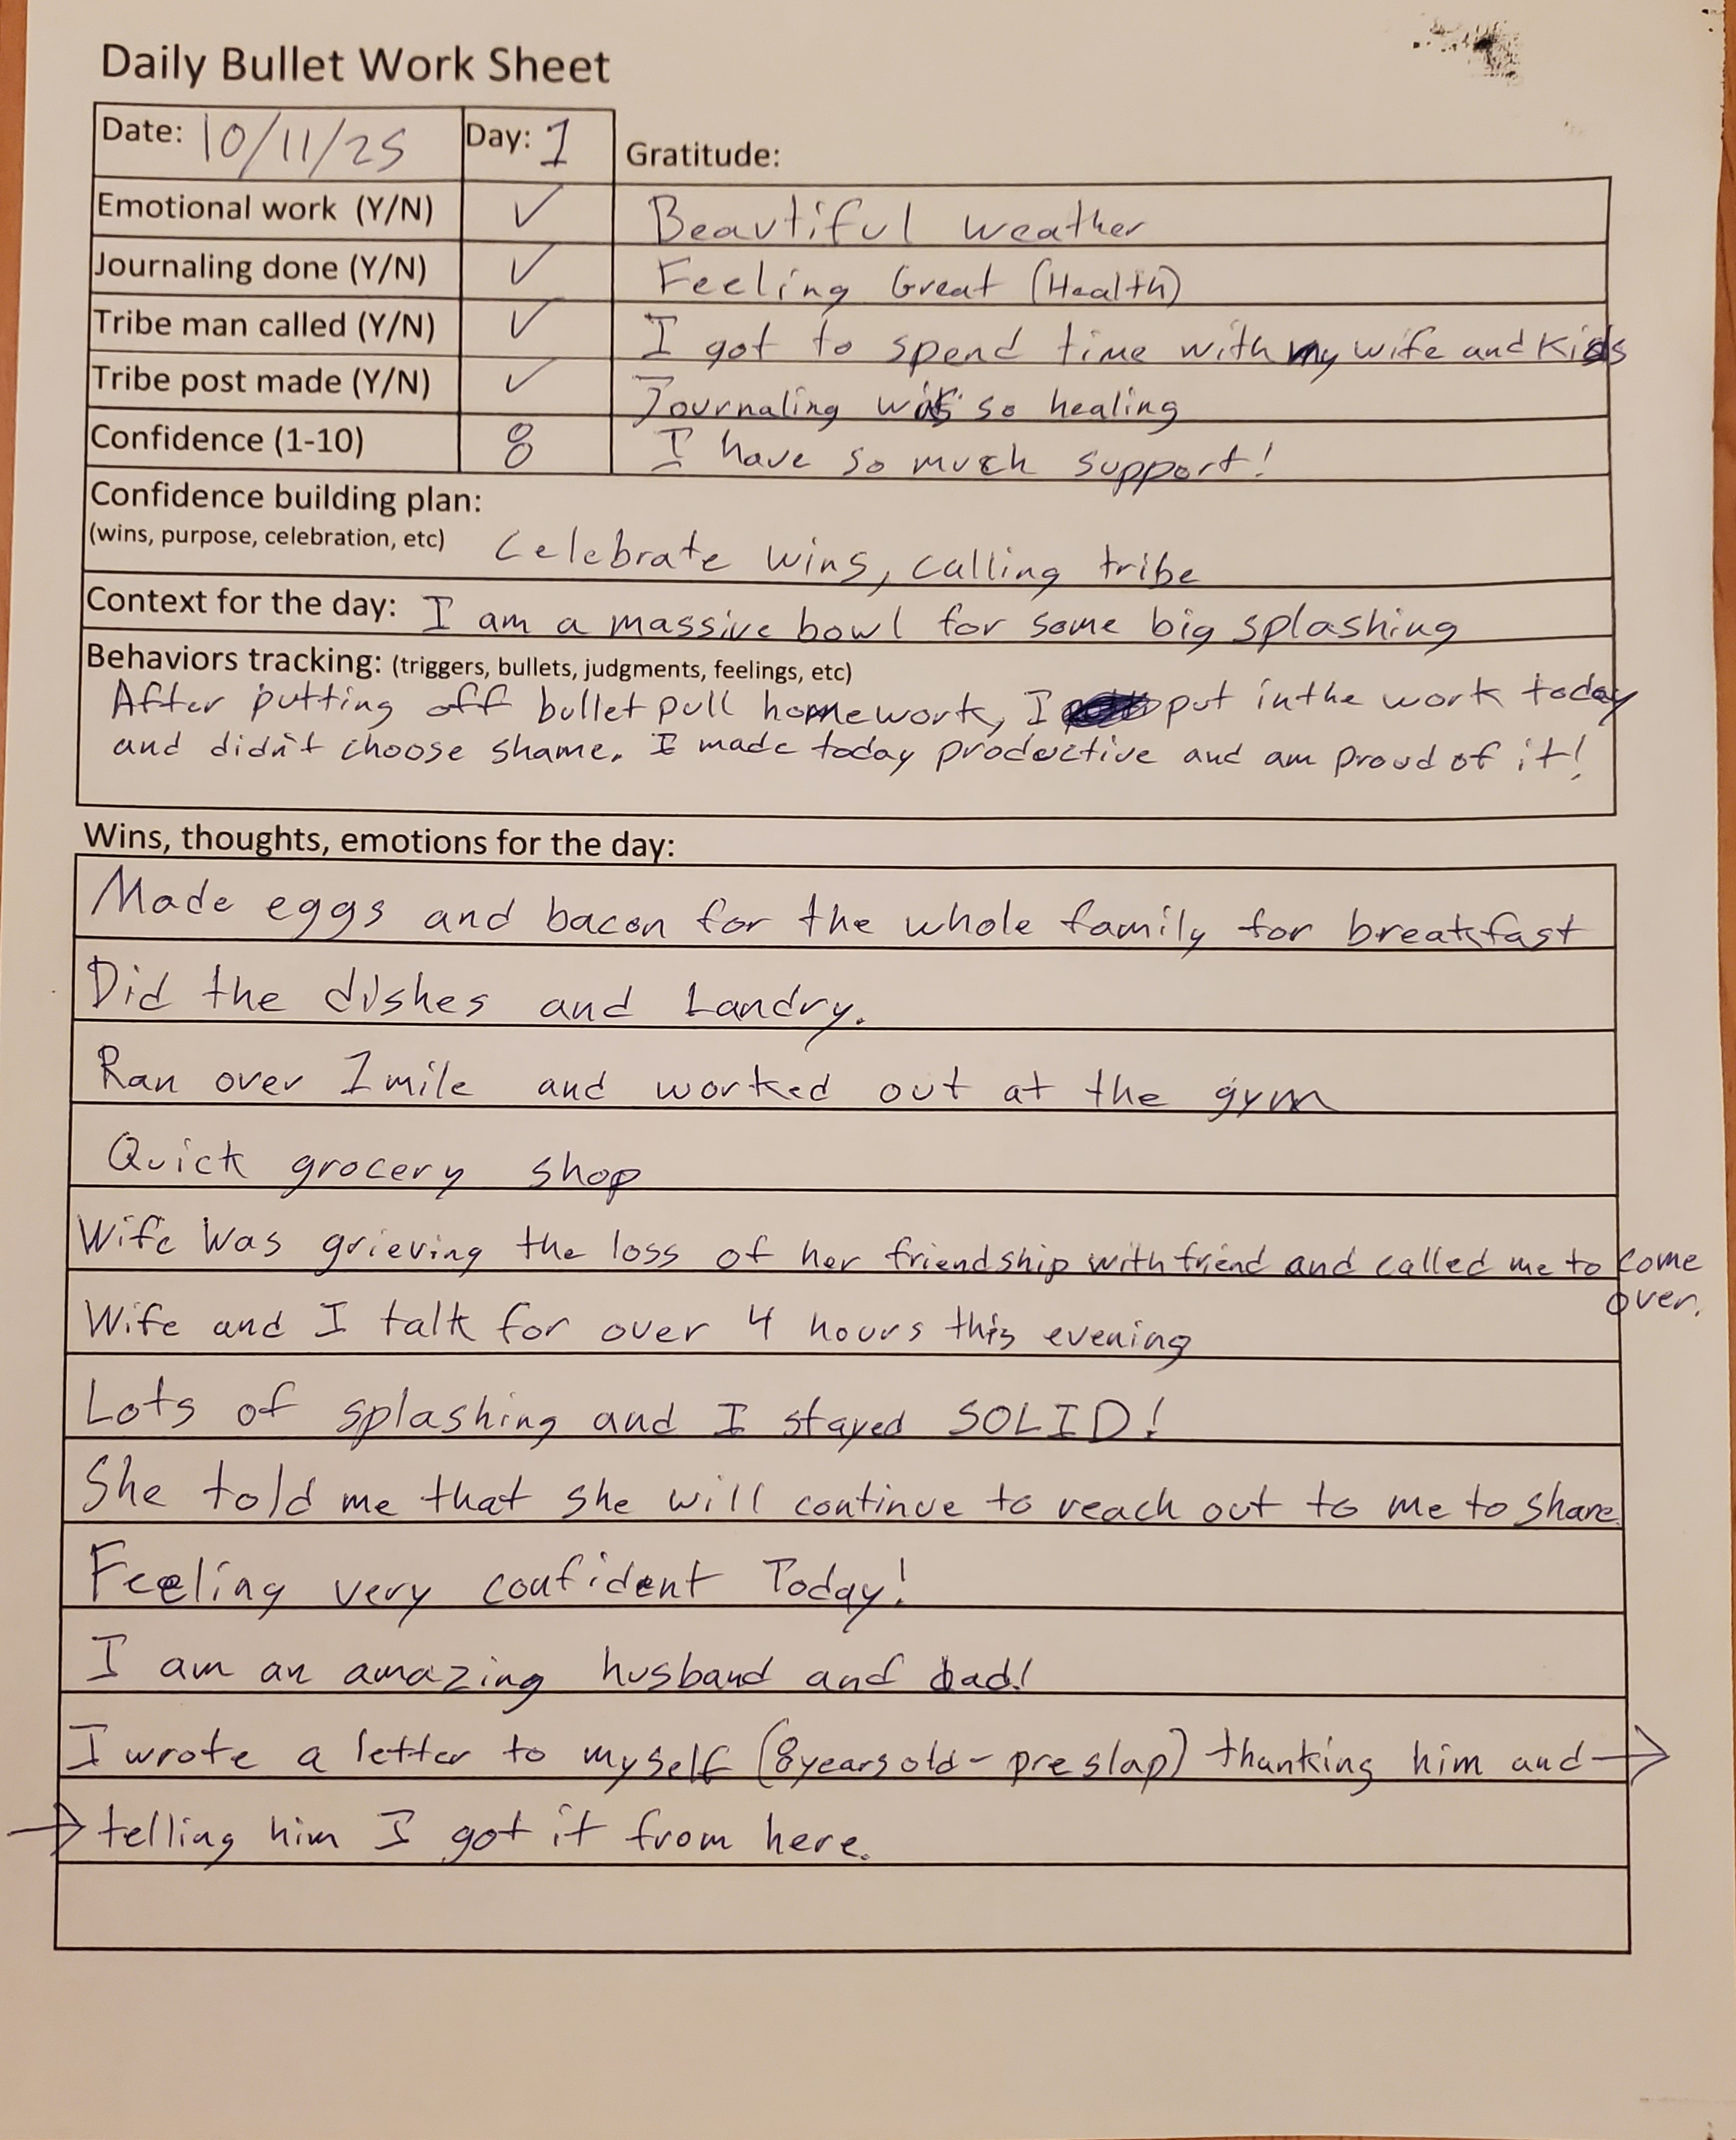 Daily Bullet Work Sheet
Date: 10/11/25 Day: 1
Gratitude:
Emotional work (Y/N) ✓ Beautiful weather
Journaling done (Y/N) ✓ Feeling Great (Health)
Tribe man called (Y/N) ✓ I got to spend time with my wife and kids
Tribe post made (Y/N) ✓ Journaling was so healing
Confidence (1-10) 8 I have so much support!
Confidence building plan:
(wins, purpose, celebration, etc) Celebrate wins, calling tribe
Context for the day: I am a massive bowl for some big splashing
Behaviors tracking: (triggers, bullets, judgments, feelings, etc)
After putting off bullet pull homework, I put in the work today
and didn't choose shame. I made today productive and am proud of it!
Wins, thoughts, emotions for the day:
Made eggs and bacon for the whole family for breakfast
Did the dishes and Landry.
Ran over 1 mile and worked out at the gym
Quick grocery shop
Wife was grieving the loss of her friendship with friend and called me to come
over.
Wife and I talk for over 4 hours this evening
Lots of splashing and I stayed SOLID!
She told me that she will continue to reach out to me to share.
Feeling very confident Today!
I am an amazing husband and dad!
I wrote a letter to myself (8 years old - pre slap) thanking him and →
→ telling him I got it from here.